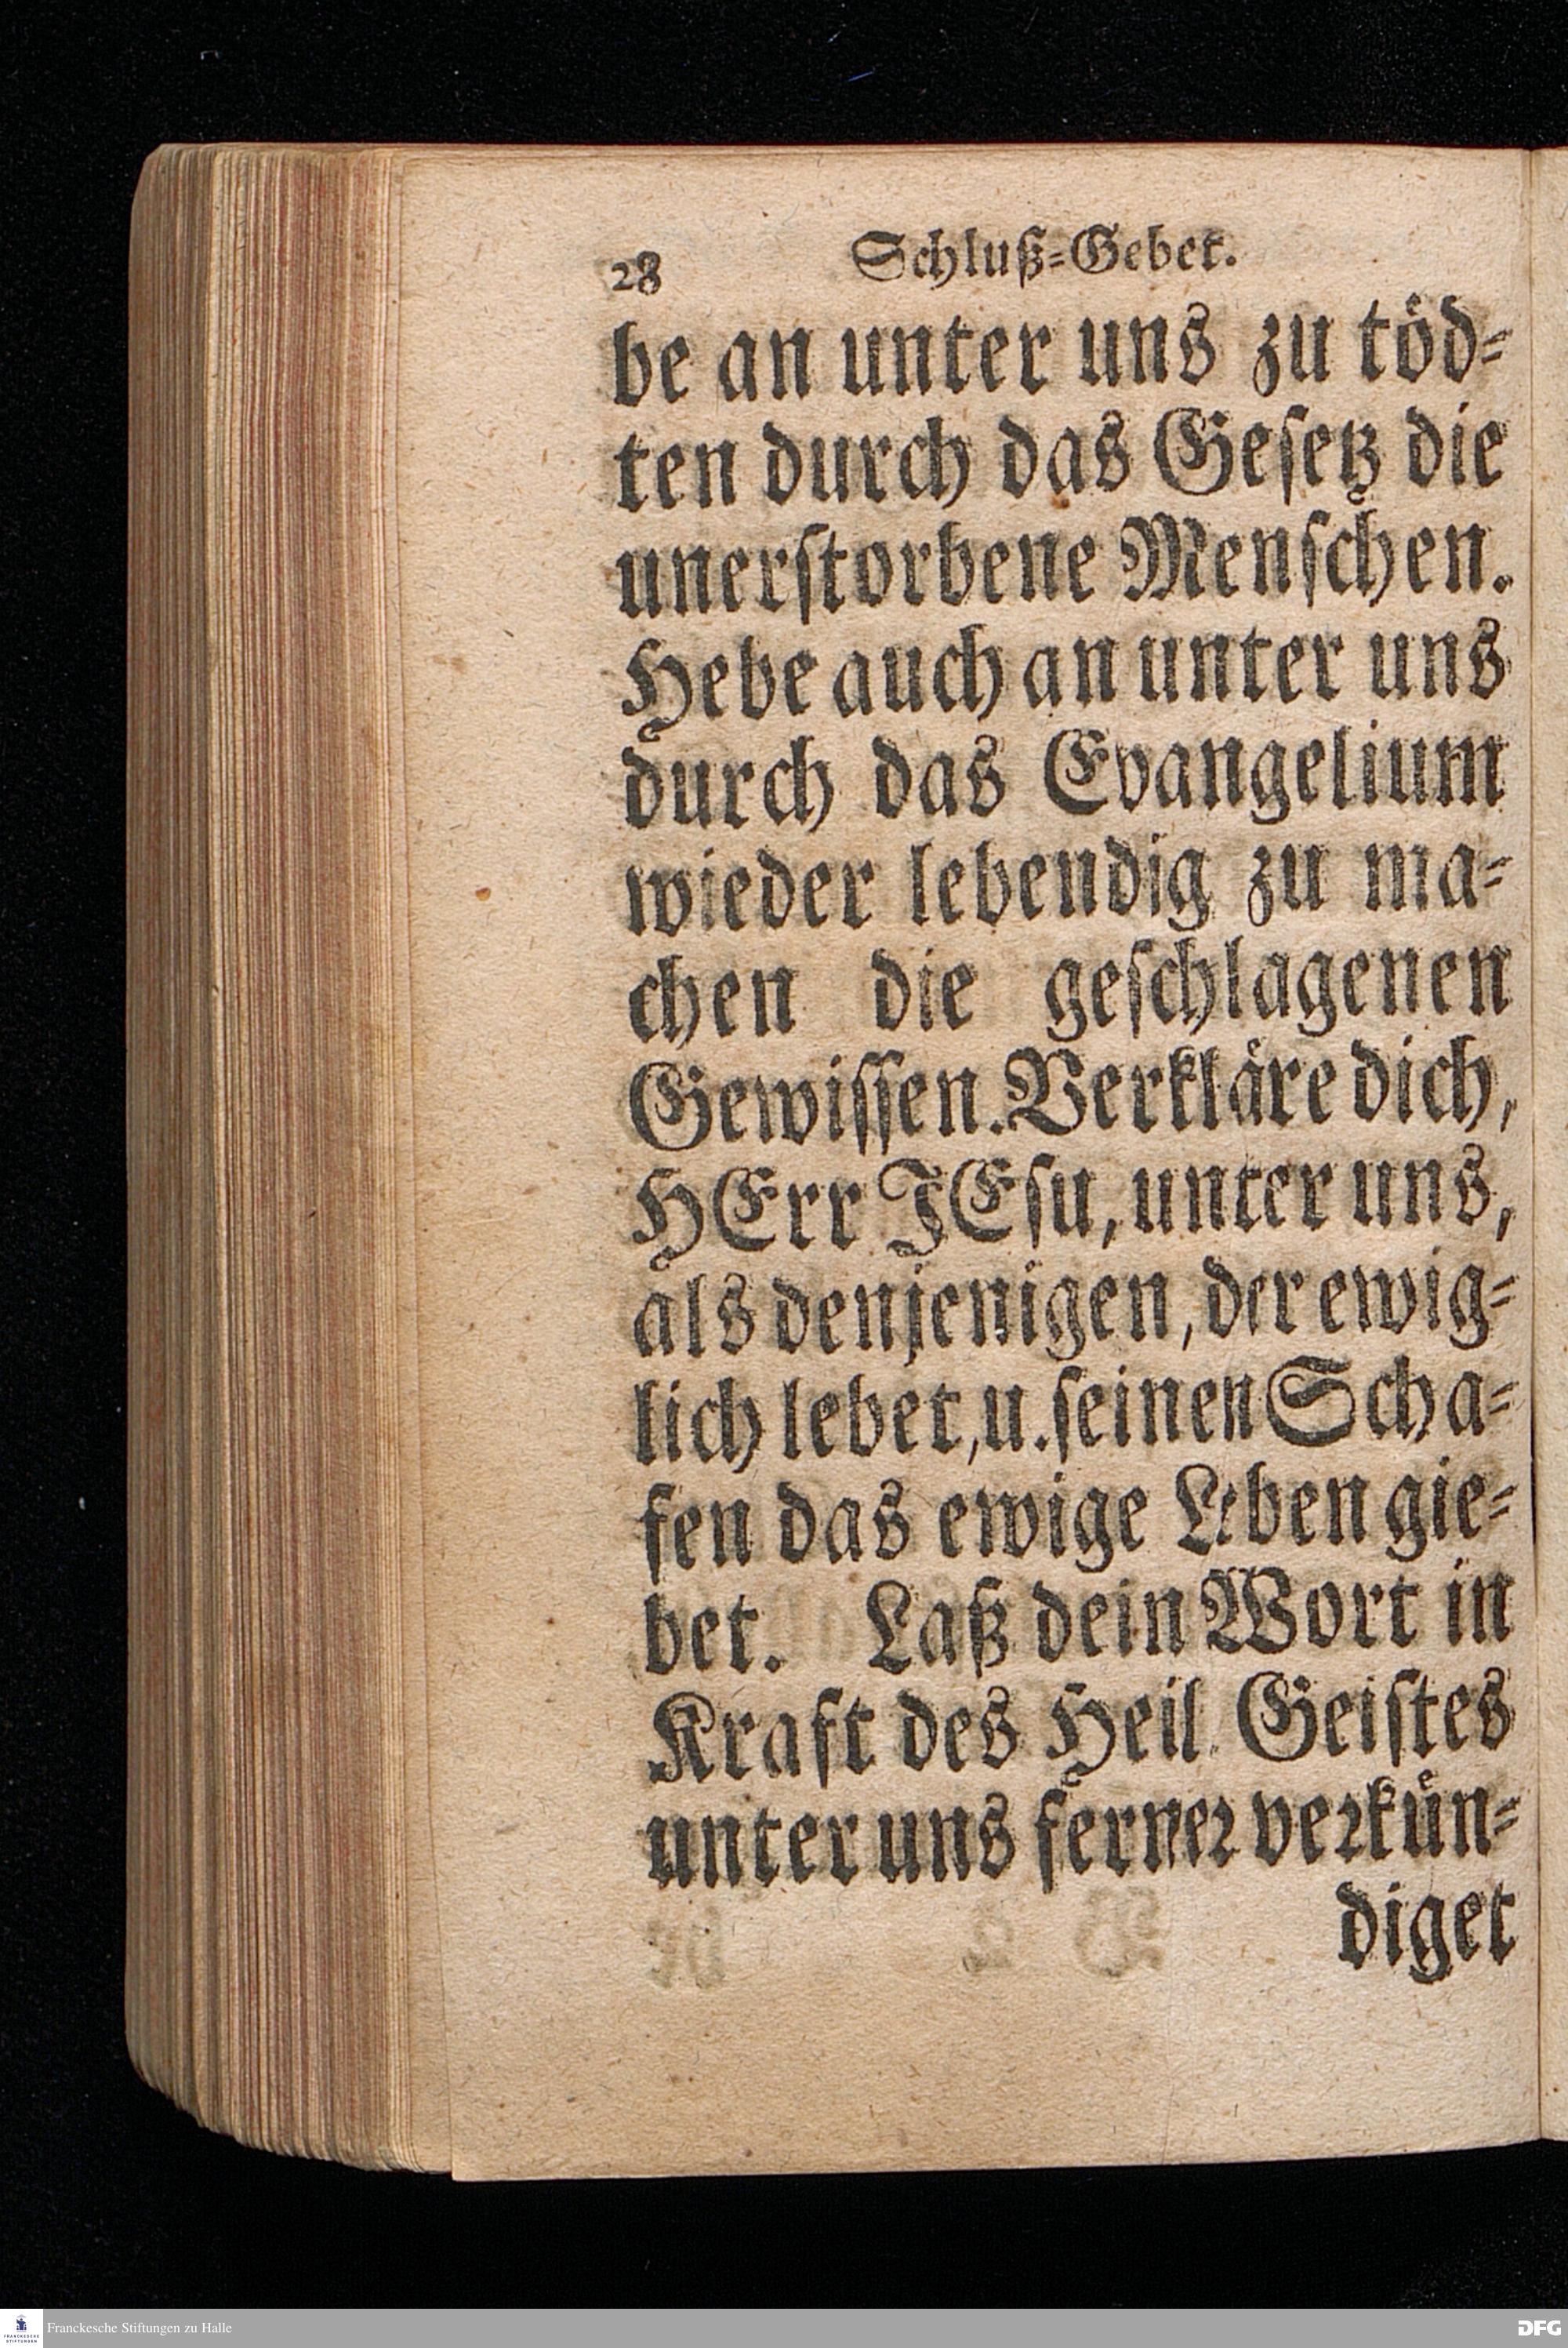 28 Schluß-Gebet.
be an unter uns zu töd-
ten durch das Gesetz die
unerstorbene Menschen.
Hebe auch an unter uns
durch das Evangelium
wieder lebendig zu ma-
chen die geschlagenen
Gewissen. Verkläre dich,
HErr JEsu, unter uns,
als denjenigen, der ewig-
lich lebet, u. seinen Scha-
fen das ewige Leben gie-
bet. Laß dein Wort in
Kraft des Heil. Geistes
unter uns ferner verkün-
diget
Franckesche Stiftungen zu Halle
FRANCKESCHE
STIFTUNGEN
DFG